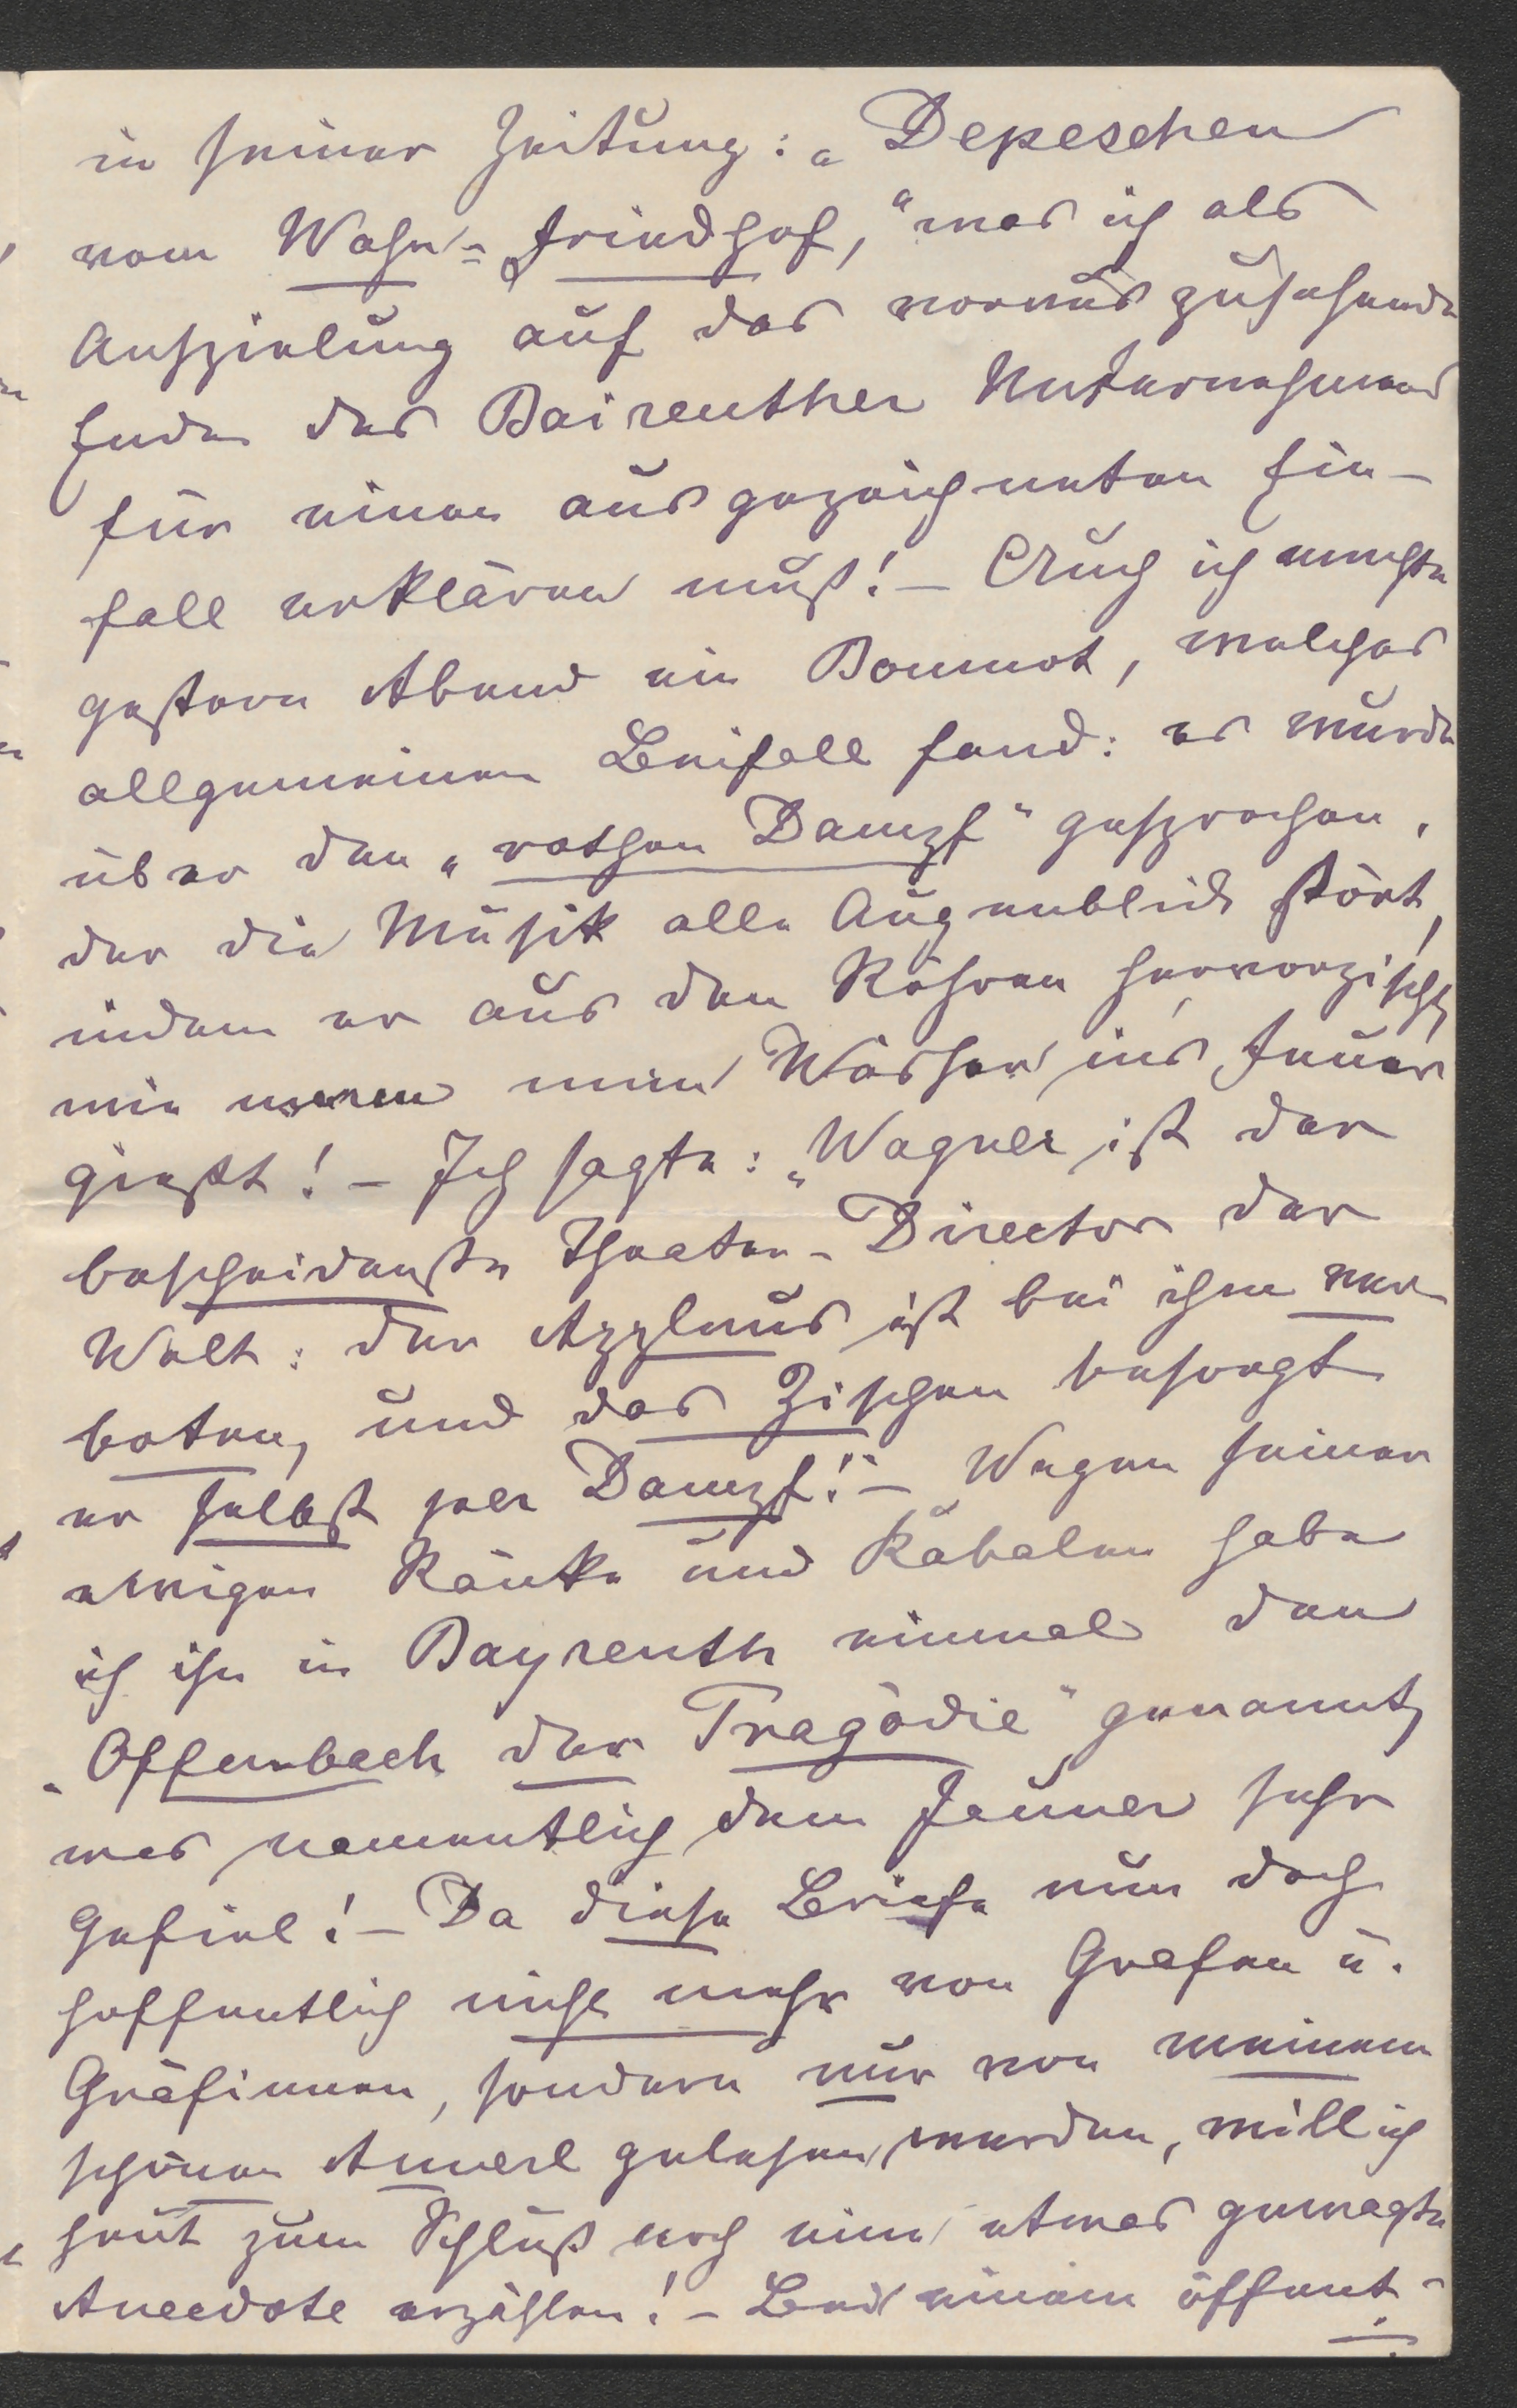 in seiner Zeitung: „Depeschen
vom Wahn-Friedhof,“ was ich als
Anspielung auf das vorauszusehende
Ende des Baireuther Unternehmens
für einen ausgezeichneten Ein-
fall erklären muß! – Auch ich machte
gestern Abend ein Bonmot, welches
allgemeinen Beifall fand: es wurde
über den „rothen Dampf“ gesprochen,
der die Musik alle Augenblick stört,
indem er aus den Röhren hervorzischt,
wie wenn man Wasser ins Feuer
gießt! – Ich sagte: „Wagner ist der
bescheidenste Theater-Director der
Welt: der Applaus ist bei ihm ver-
boten, und das Zischen besorgt
er selbst per Dampf!“ – Wegen seiner
ewigen Ränke und Kabalen habe
ich ihn in Bayreuth einmal den
„Offenbach der Tragödie“ genannt,
was namentlich dem Jauner sehr
gefiel! – Da diese Briefe nun doch
hoffentlich nicht mehr von Grafen u.
Gräfinnen, sondern nur von meinem
schönen Annerl gelesen werden, will ich
heut zum Schluß noch eine etwas gewagte
Anecdote erzählen! – Bei einem öffent-